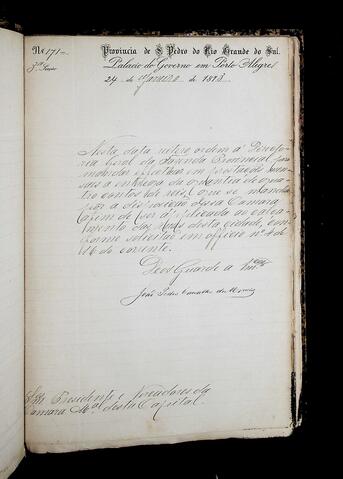 Nº 171
3ª Secção
Provincia de S. Pedro do Rio Grande do Sul.
Palacio do Governo em Porto Alegre,
24 de Janeiro de 1873.
Nesta data reitero ordem á Directo-
ria Geral da Fazenda Provincial para
mandar effectuar em prestações
a entrega da quantia de quatro
contos de reis, que se mandou
por á disposição dessa Camara
afim de ser applicada ao calça-
mento das ruas desta cidade, con-
forme solicitou em officio nº 4 de
16 do corrente.
Deos Guarde a Vmces
João Pedro Carvalho de Moraes
Presidente e Vereadores da
Camara Mal desta Capital.